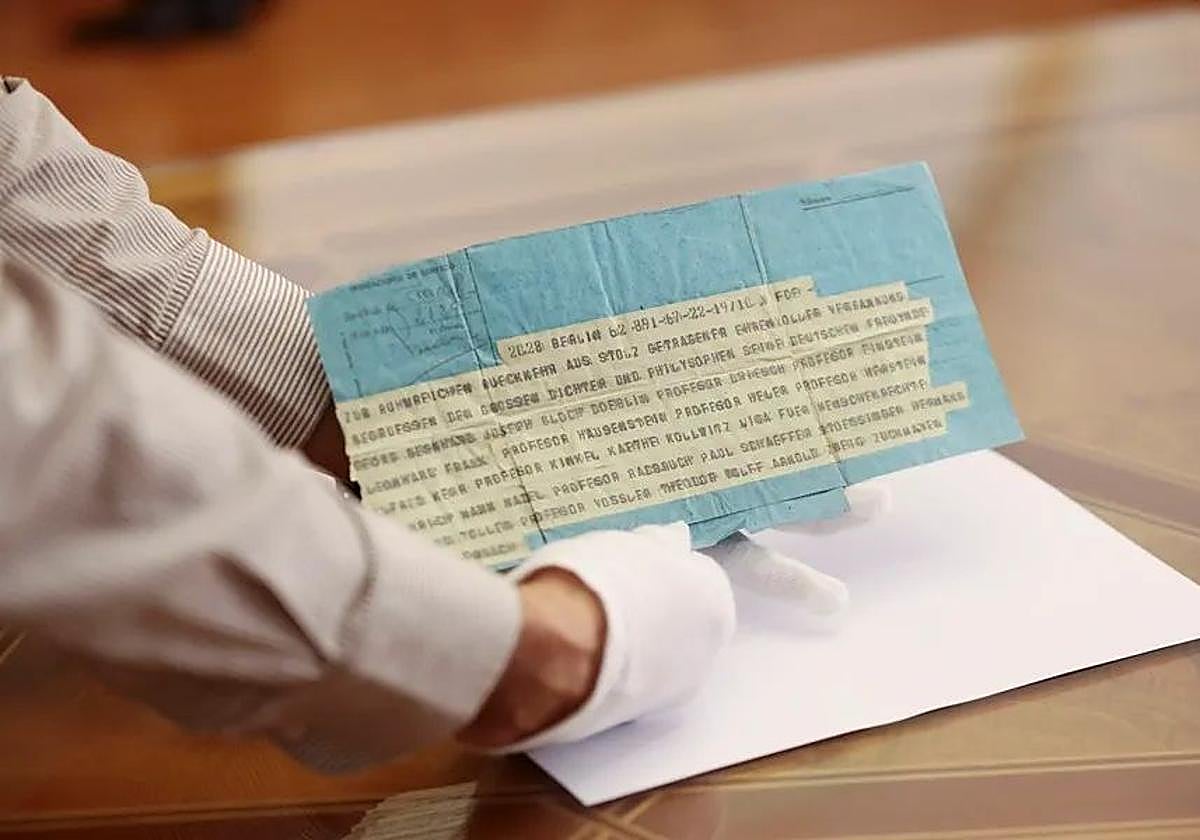 2628 BERLIN 62 891-67-22-1971C W FOR
ZUR RUHMREICHEN RUECKKEHR AUS STOLZ GETRAGENER EHRENVOLLER VERBANNUNG
BEGRUESSEN DEN GROSSEN DICHTER UND PHILYSOPHEN SEINE DEUTSCHEN FREUNDE
BERNHARD JOSEPH BLOCH DOEBLIN PROFESOR DRIESCH PROFESOR EINSTEIN
LEONHARD FRANK PROFESOR HAUSENSTEIN PROFESOR HELER PROFESOR HERSTEIN
ALFRED KERR PROFESOR KINKEL KAETHE KOLLWITZ LIGA FUER MENSCHENRECHTE
MANN NADEL PROFESOR RADBRUCH PAUL SCHAEFFER STOESSINGER HERMANN
TOLLER PROFESOR VOSSLER THEODOR WOLFF ARNOLD ZWEIG ZUCKMAYER